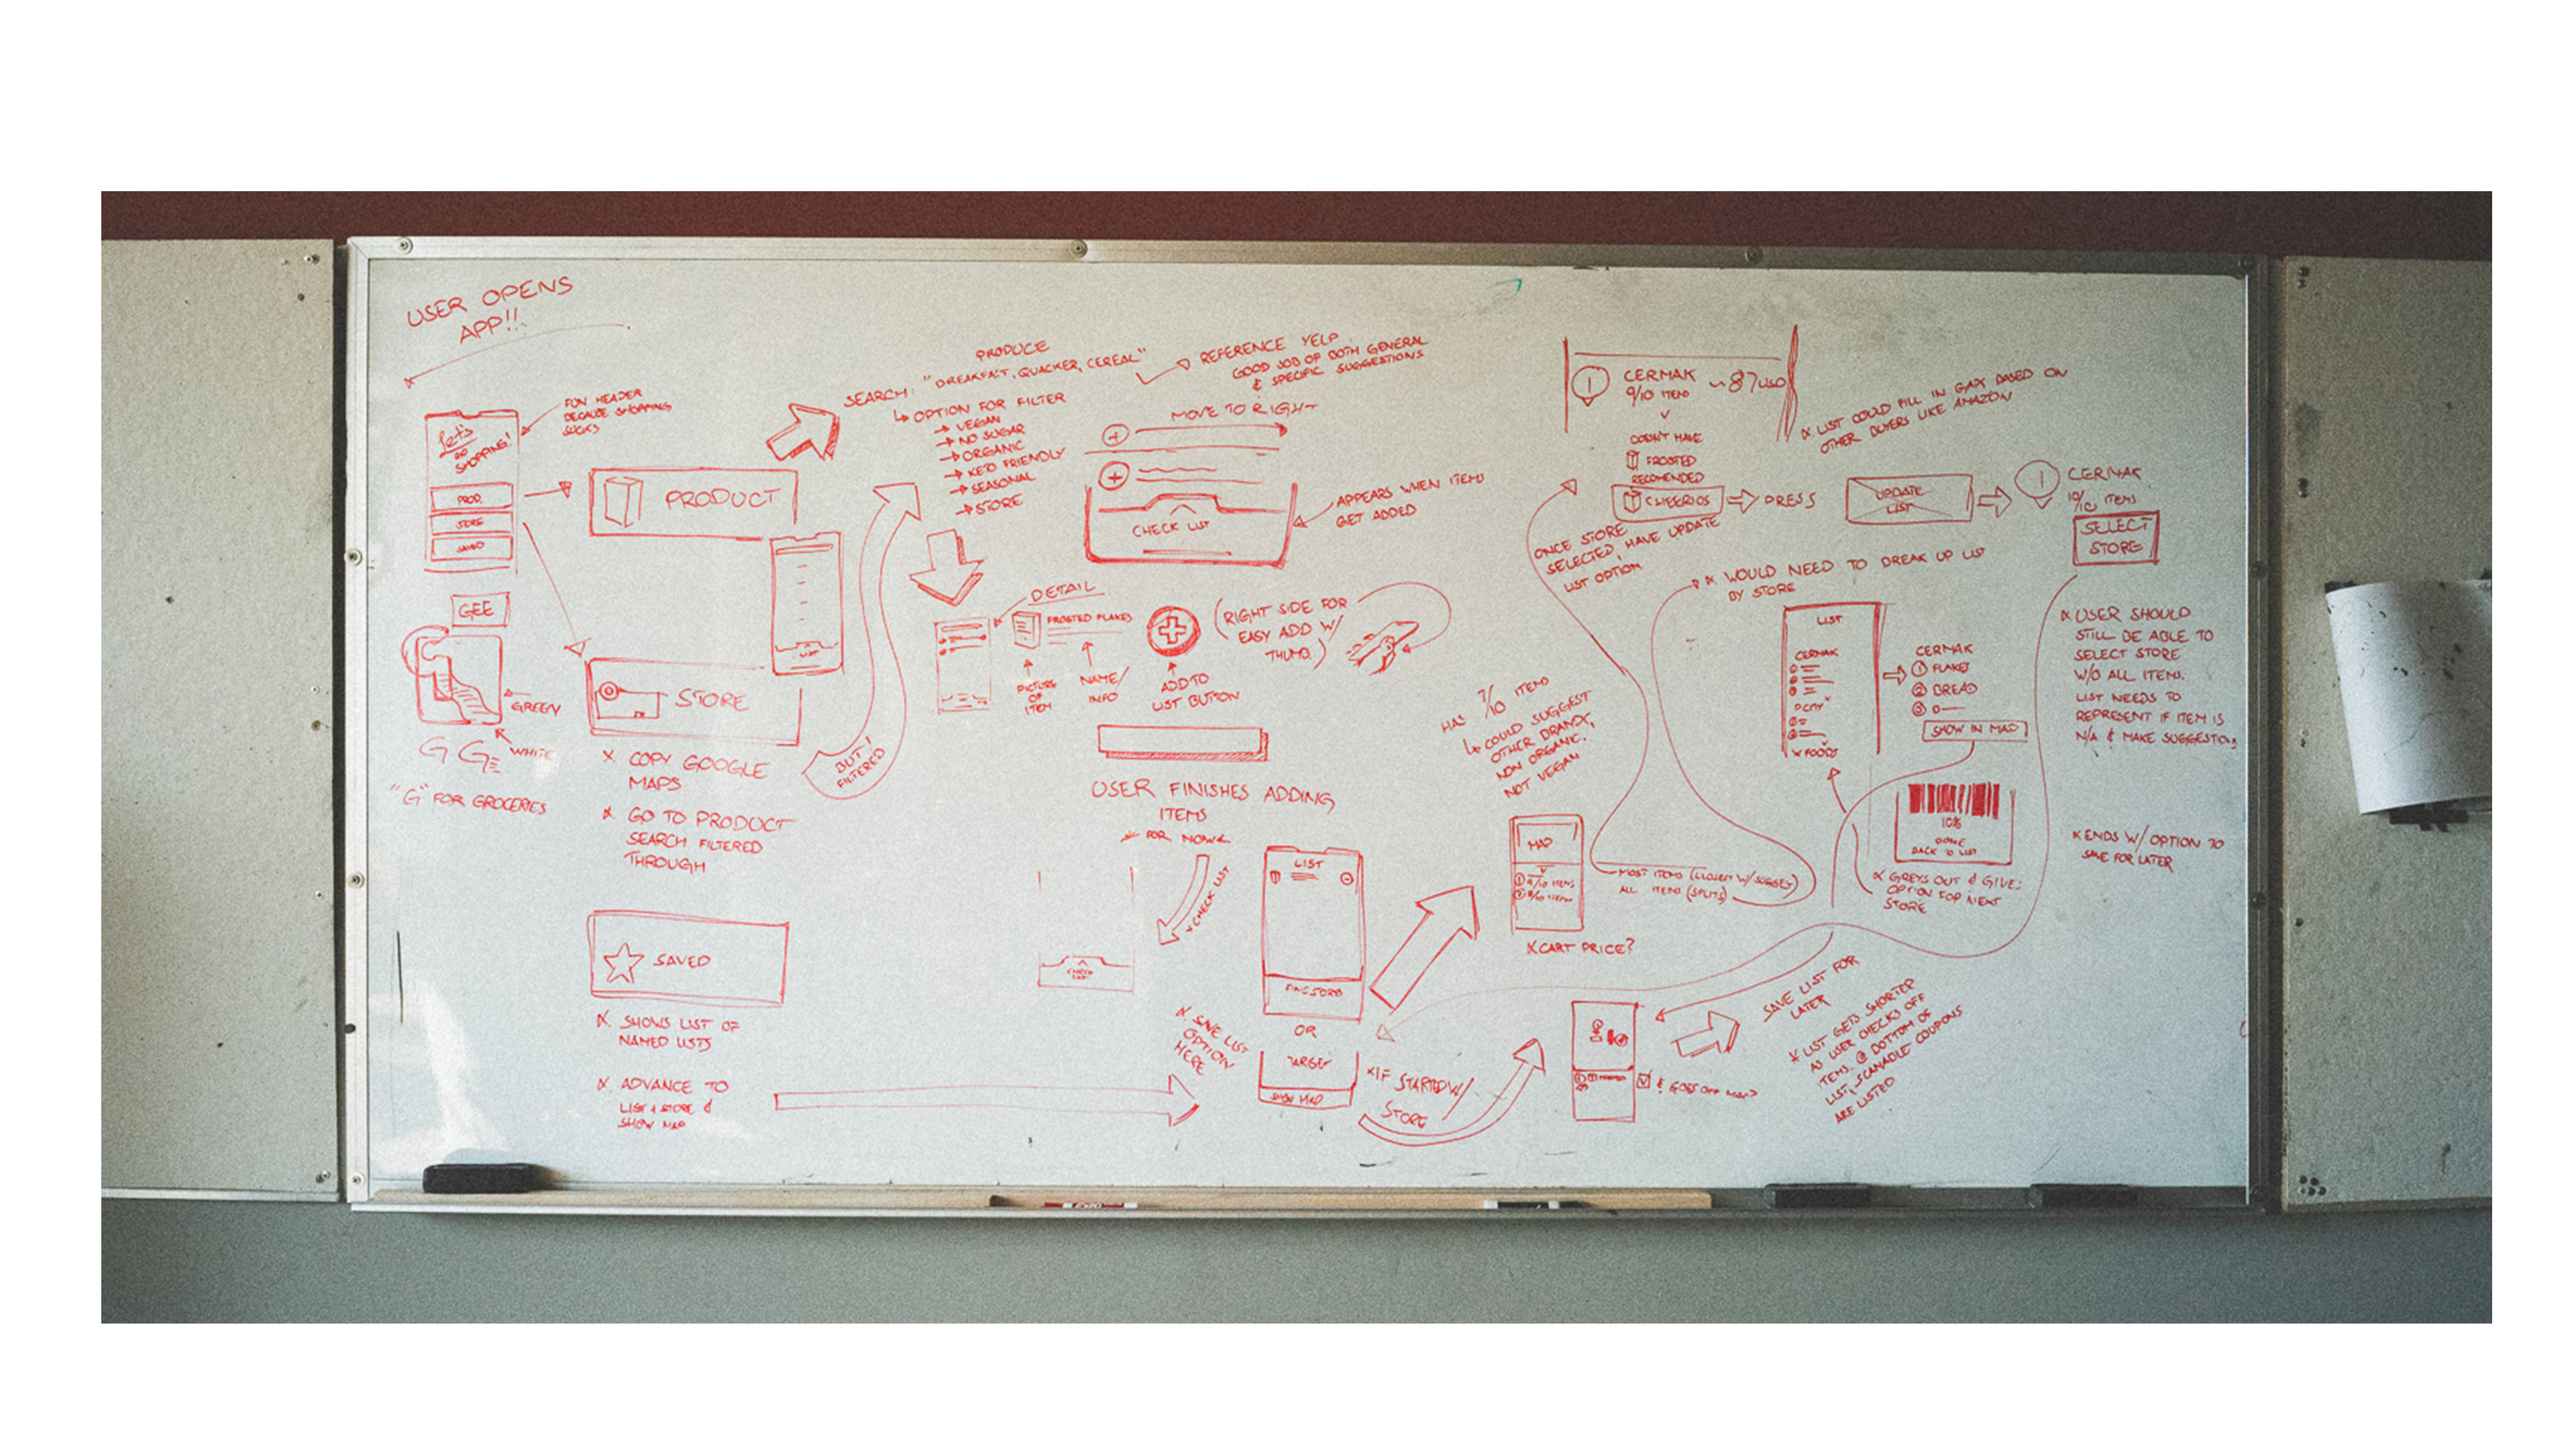 USER OPENS
APP!!
FUN HEADER
BECAUSE SHOPPING
SUCKS
Let's
GO
SHOPPING!
PROD.
STORE
SAVED
GEE
GREEN
WHITE
G GE
"G" FOR GROCERIES
PRODUCT
LIST
STORE
X COPY GOOGLE
MAPS
X GO TO PRODUCT
SEARCH FILTERED
THROUGH
SAVED
X SHOWS LIST OF
NAMED LISTS
X ADVANCE TO
LIST + STORE &
SHOW MAP
BUT!
FILTERED
PRODUCE
SEARCH: "BREAKFAST, QUACKER, CEREAL"
OPTION FOR FILTER
→ VEGAN
→ NO SUGAR
→ ORGANIC
→ KETO FRIENDLY
→ SEASONAL
→ STORE
REFERENCE YELP
GOOD JOB OF BOTH GENERAL
& SPECIFIC SUGGESTIONS
MOVE TO RIGHT
CHECK LIST
APPEARS WHEN ITEMS
GET ADDED
DETAIL
FROSTED FLAKES
PICTURE
OF
ITEM
NAME/
INFO
ADD TO
LIST BUTTON
(RIGHT SIDE FOR
EASY ADD W/
THUMB.)
USER FINISHES ADDING
ITEMS
FOR NOW
CHECK LIST
X CHECK LIST
LIST
FIND STORE
OR
TARGET
SHOW MAP
X SAVE LIST
OPTION
HERE
X IF STARTED W/
STORE
HAS 7/10 ITEMS
COULD SUGGEST
OTHER BRANDS,
NON ORGANIC.
NOT VEGAN
MAP
1 9/10 ITEMS
2 8/10 ITEMS
X CART PRICE?
MOST ITEMS (CLOSEST W/SUGGEST)
ALL ITEMS (SPLITS)
1 CERMAK ~87USD
9/10 ITEMS
DOESN'T HAVE
FROSTED
RECOMENDED
CHEERIOS
PRESS
UPDATE
LIST
1 CERMAK
10/10 ITEMS
SELECT
STORE
X LIST COULD FILL IN GAPS BASED ON
OTHER BUYERS LIKE AMAZON
ONCE STORE
SELECTED, HAVE UPDATE
LIST OPTION
X WOULD NEED TO BREAK UP LIST
BY STORE
LIST
CERMAK
W FOODS
CERMAK
1 FLAKES
2 BREAD
3
SHOW IN MAP
10%
DONE
BACK TO LIST
X GREYS OUT & GIVES
OPTION FOR NEXT
STORE
X USER SHOULD
STILL BE ABLE TO
SELECT STORE
W/O ALL ITEMS.
LIST NEEDS TO
REPRESENT IF ITEM IS
N/A & MAKE SUGGESTIONS
X ENDS W/ OPTION TO
SAVE FOR LATER
& GOES OFF MAP?
SAVE LIST FOR
LATER
X LIST GETS SHORTER
AS USER CHECKS OFF
ITEMS. @ BOTTOM OF
LIST, SCANABLE COUPONS
ARE LISTED
EXPO